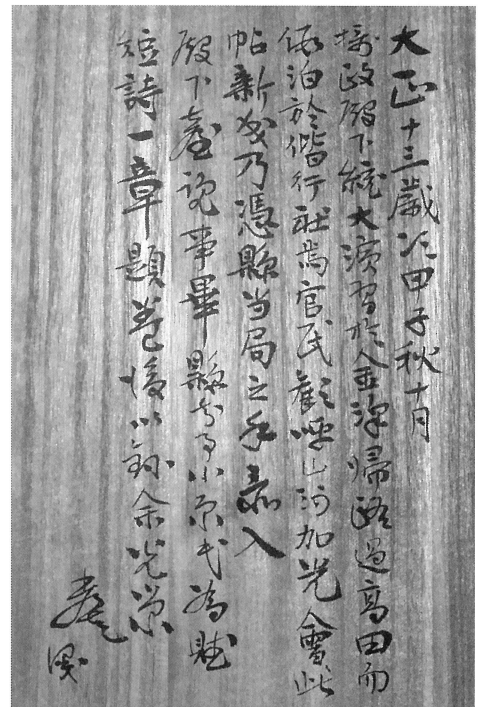 大正十三歳次甲子秋十月
摂政殿下統大演習於金沢帰路過高田而
仮泊於偕行社焉官民歓呼山河加光会此
帖新成乃憑県当局之手嘉入
殿下台覧事畢県知事小原氏為賦
短詩一章題巻後以録余光栄